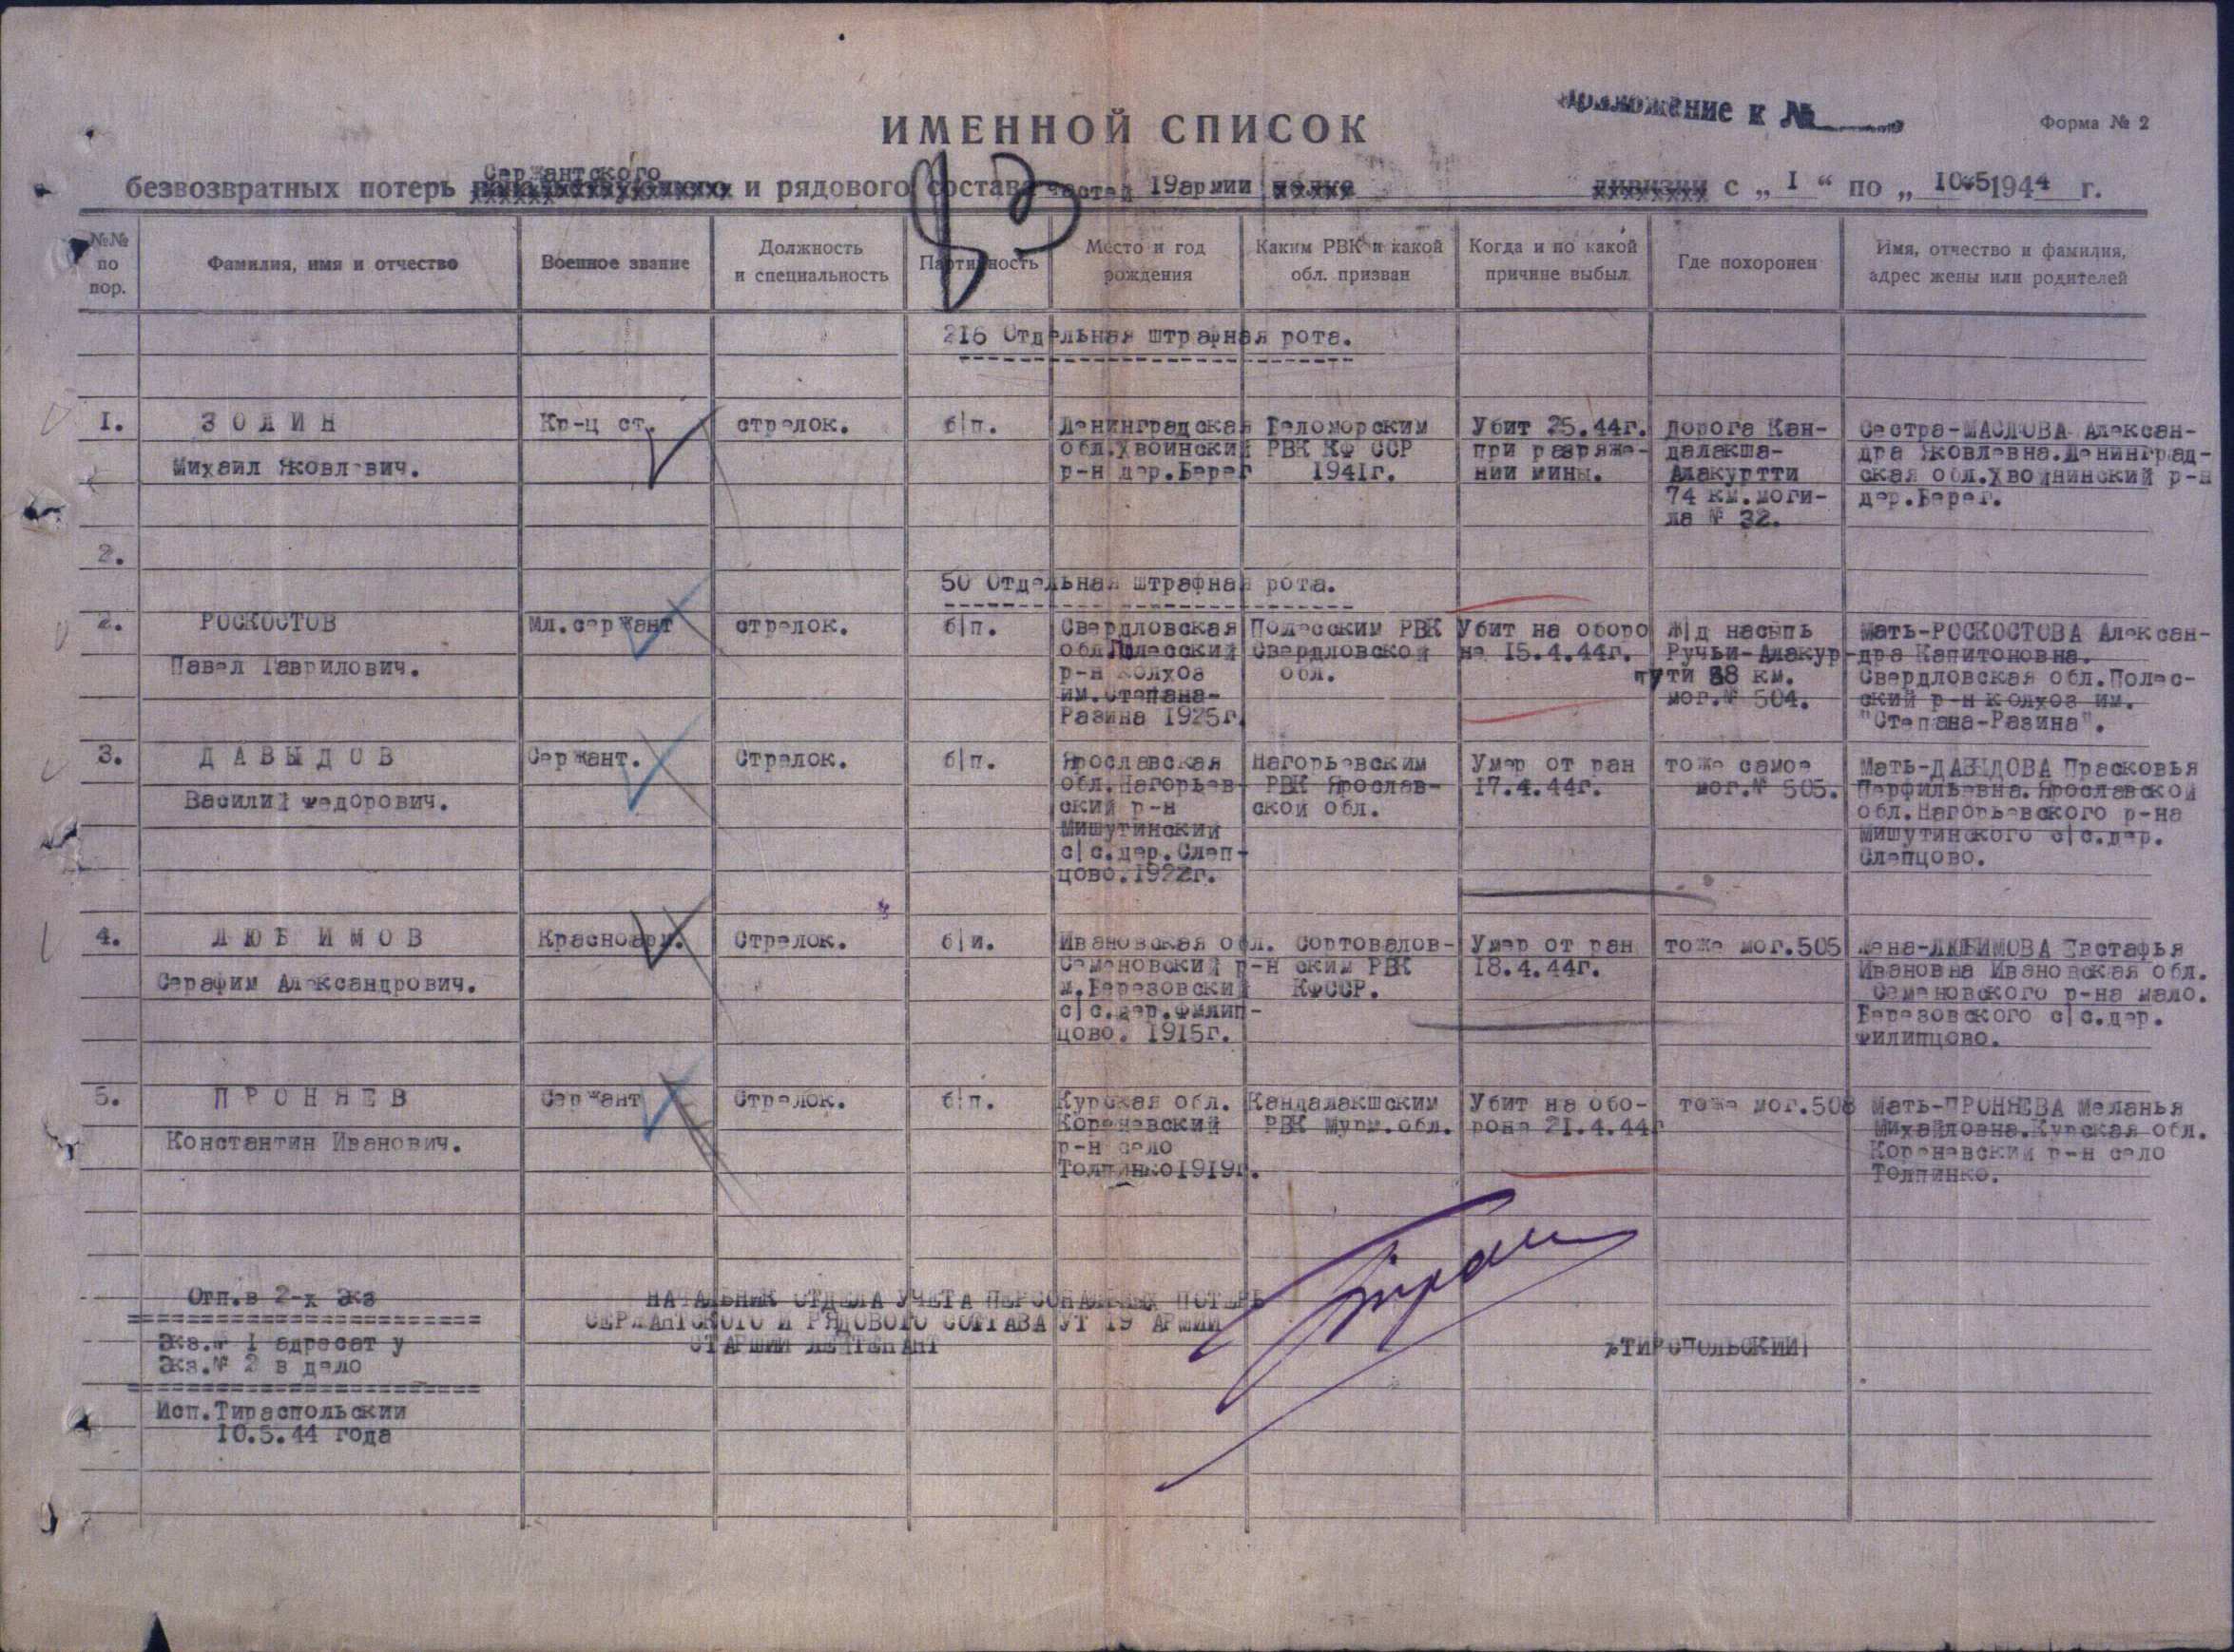 Приложение к №
Форма № 2
ИМЕННОЙ СПИСОК
Сержантского
безвозвратных потерь и рядового состава частей 19армии полка дивизии с „ I “ по „ 10.5 1944 г.
№№ по пор.
Фамилия, имя и отчество
Военное звание
Должность и специальность
Партийность
Место и год рождения
Каким РВК и какой обл. призван
Когда и по какой причине выбыл
Где похоронен
Имя, отчество и фамилия, адрес жены или родителей
216 Отдельная штрафная рота.
I.
ЗОЛИН
Михаил Яковлевич.
Кр-ц ст.
стрелок.
б/п.
Ленинградская
обл.Хвоинский
р-н дер.Берег
Беломорским
РВК КФ ССР
1941г.
Убит 25.44г.
при разряже-
нии мины.
дорога Кан-
далакша-
Алакуртти
74 км.моги-
ла № 32.
Сестра-МАСЛОВА Алексан-
дра Яковлевна.Ленинград-
ская обл.Хвойнинский р-н
дер.Берег.
2.
50 Отдельная штрафная рота.
2.
РОСКОСТОВ
Павел Гаврилович.
Мл.сержант
стрелок.
б/п.
Свердловская
обл.Полесский
р-н колхоз
им.Степана-
Разина 1925г.
Полесским РВК
Свердловской
обл.
Убит на оборо
не 15.4.44г.
ж/д насыпь
Ручьи-Алакур-
тути 38 км.
мог.№ 504.
Мать-РОСКОСТОВА Алексан-
дра Капитоновна.
Свердловская обл.Полес-
ский р-н колхоз им.
"Степана-Разина".
3.
ДАВЫДОВ
Василий Федорович.
Сержант.
Стрелок.
б/п.
Ярославская
обл.Нагорьев-
ский р-н
Мишутинский
с/с.дер.Слеп-
цово.1922г.
Нагорьевским
РВК Ярослав-
ской обл.
Умер от ран
17.4.44г.
тоже самое
мог.№ 505.
Мать-ДАВЫДОВА Прасковья
Перфильевна.Ярославской
обл.Нагорьевского р-на
Мишутинского с/с.дер.
Слепцово.
4.
ЛЮБИМОВ
Серафим Александрович.
Красноарм.
Стрелок.
б/и.
Ивановская обл.
Семеновский р-н
м.Березовский
с/с.дер.Филип-
цово. 1915г.
Сортовалов-
ским РВК
КФССР.
Умер от ран
18.4.44г.
тоже мог.505
Жена-ЛЮБИМОВА Евстафья
Ивановна Ивановская обл.
Семеновского р-на мало.
Березовского с/с.дер.
Филипцово.
5.
ПРОНЯЕВ
Константин Иванович.
Сержант
Стрелок.
б/п.
Курская обл.
Кореневский
р-н село
Толпинко1919г.
Кандалакшским
РВК Мурм.обл.
Убит на обо-
роне 21.4.44г
тоже мог.508
Мать-ПРОНЯЕВА Меланья
Михайловна.Курская обл.
Кореневский р-н село
Толпинко.
Отп.в 2-х экз
Экз.№ 1 адресат у
Экз.№ 2 в дело
Исп.Тираспольский
10.5.44 года
НАЧАЛЬНИК ОТДЕЛА УЧЕТА ПЕРСОНАЛЬНЫХ ПОТЕРЬ
СЕРЖАНТСКОГО И РЯДОВОГО СОСТАВА УТ 19 АРМИИ
СТАРШИЙ ЛЕЙТЕНАНТ
/ТИРОПОЛЬСКИЙ/